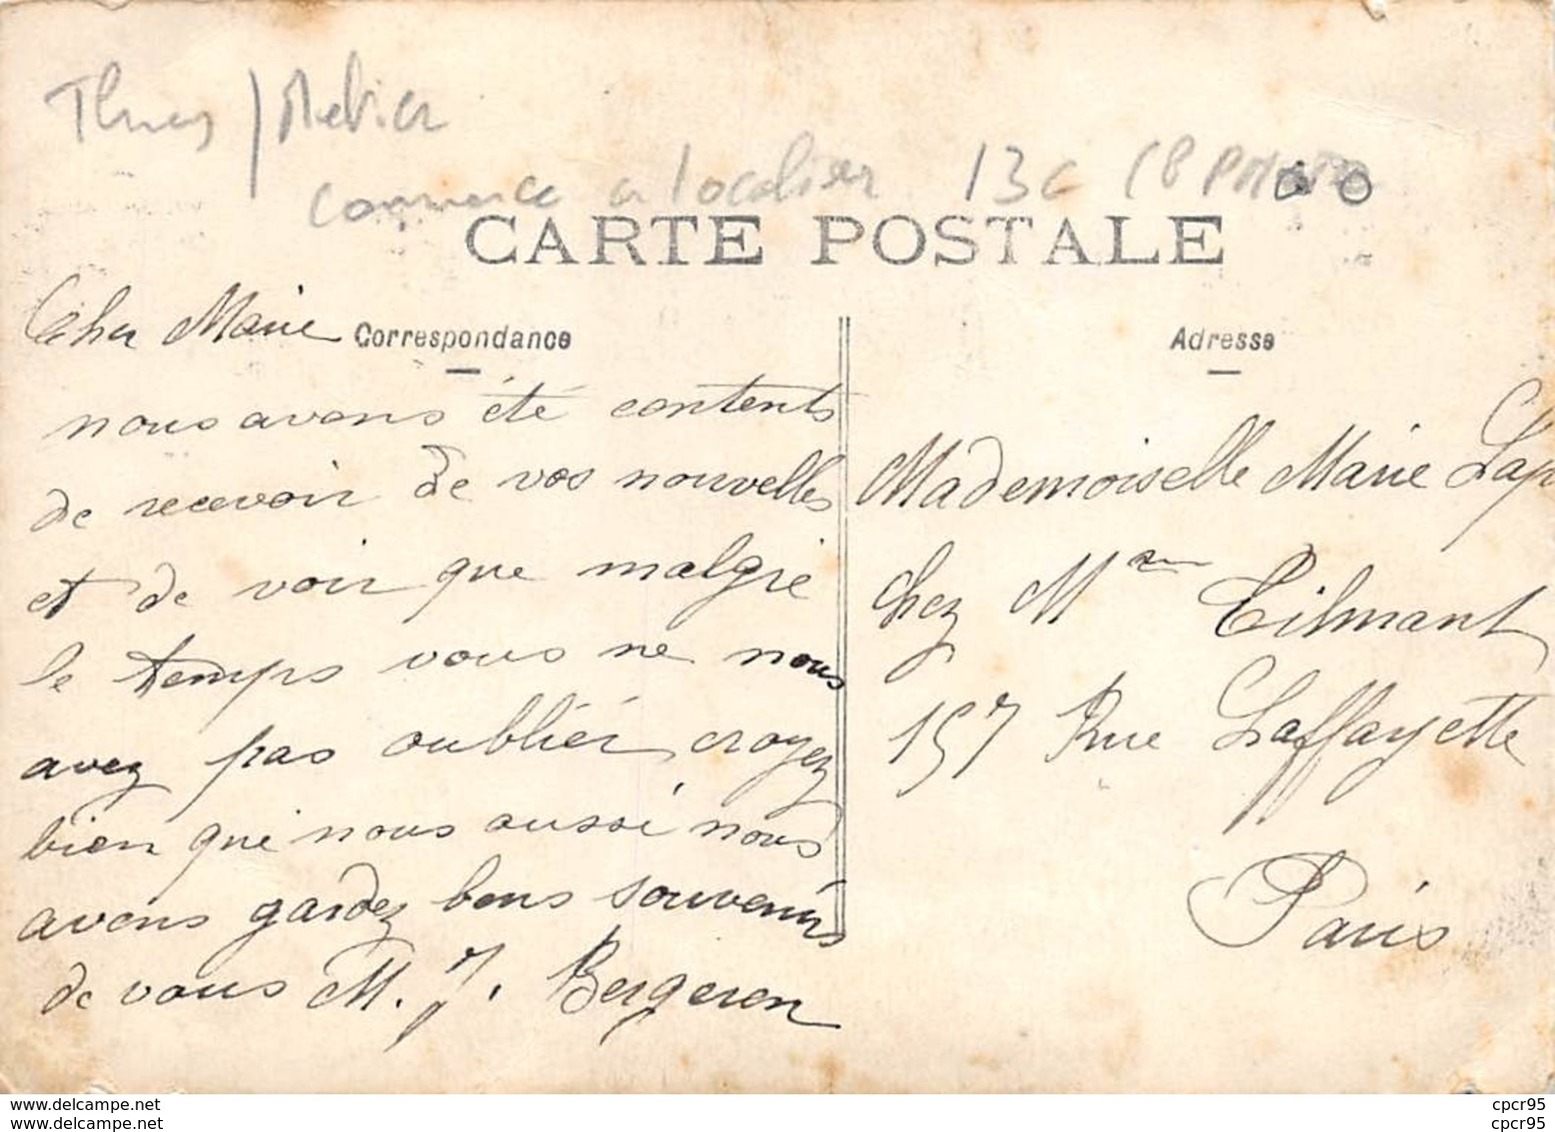 Métier
Commerce a localiser 13c
CARTE POSTALE
Cher Marie
Correspondance
nous avons été contents
de recevoir de vos nouvelles
et de voir que malgre
le temps vous ne nous
avez pas oubliér, croyez
bien que nous aussi nous
avons gardez bons souvenirs
de vous M. J. Bergeron
Adresse
Mademoiselle Marie Lap
Chez Mme Tilmant
157 Rue Laffayette
Paris
www.delcampe.net
cpcr95
www.delcampe.net
cpcr95